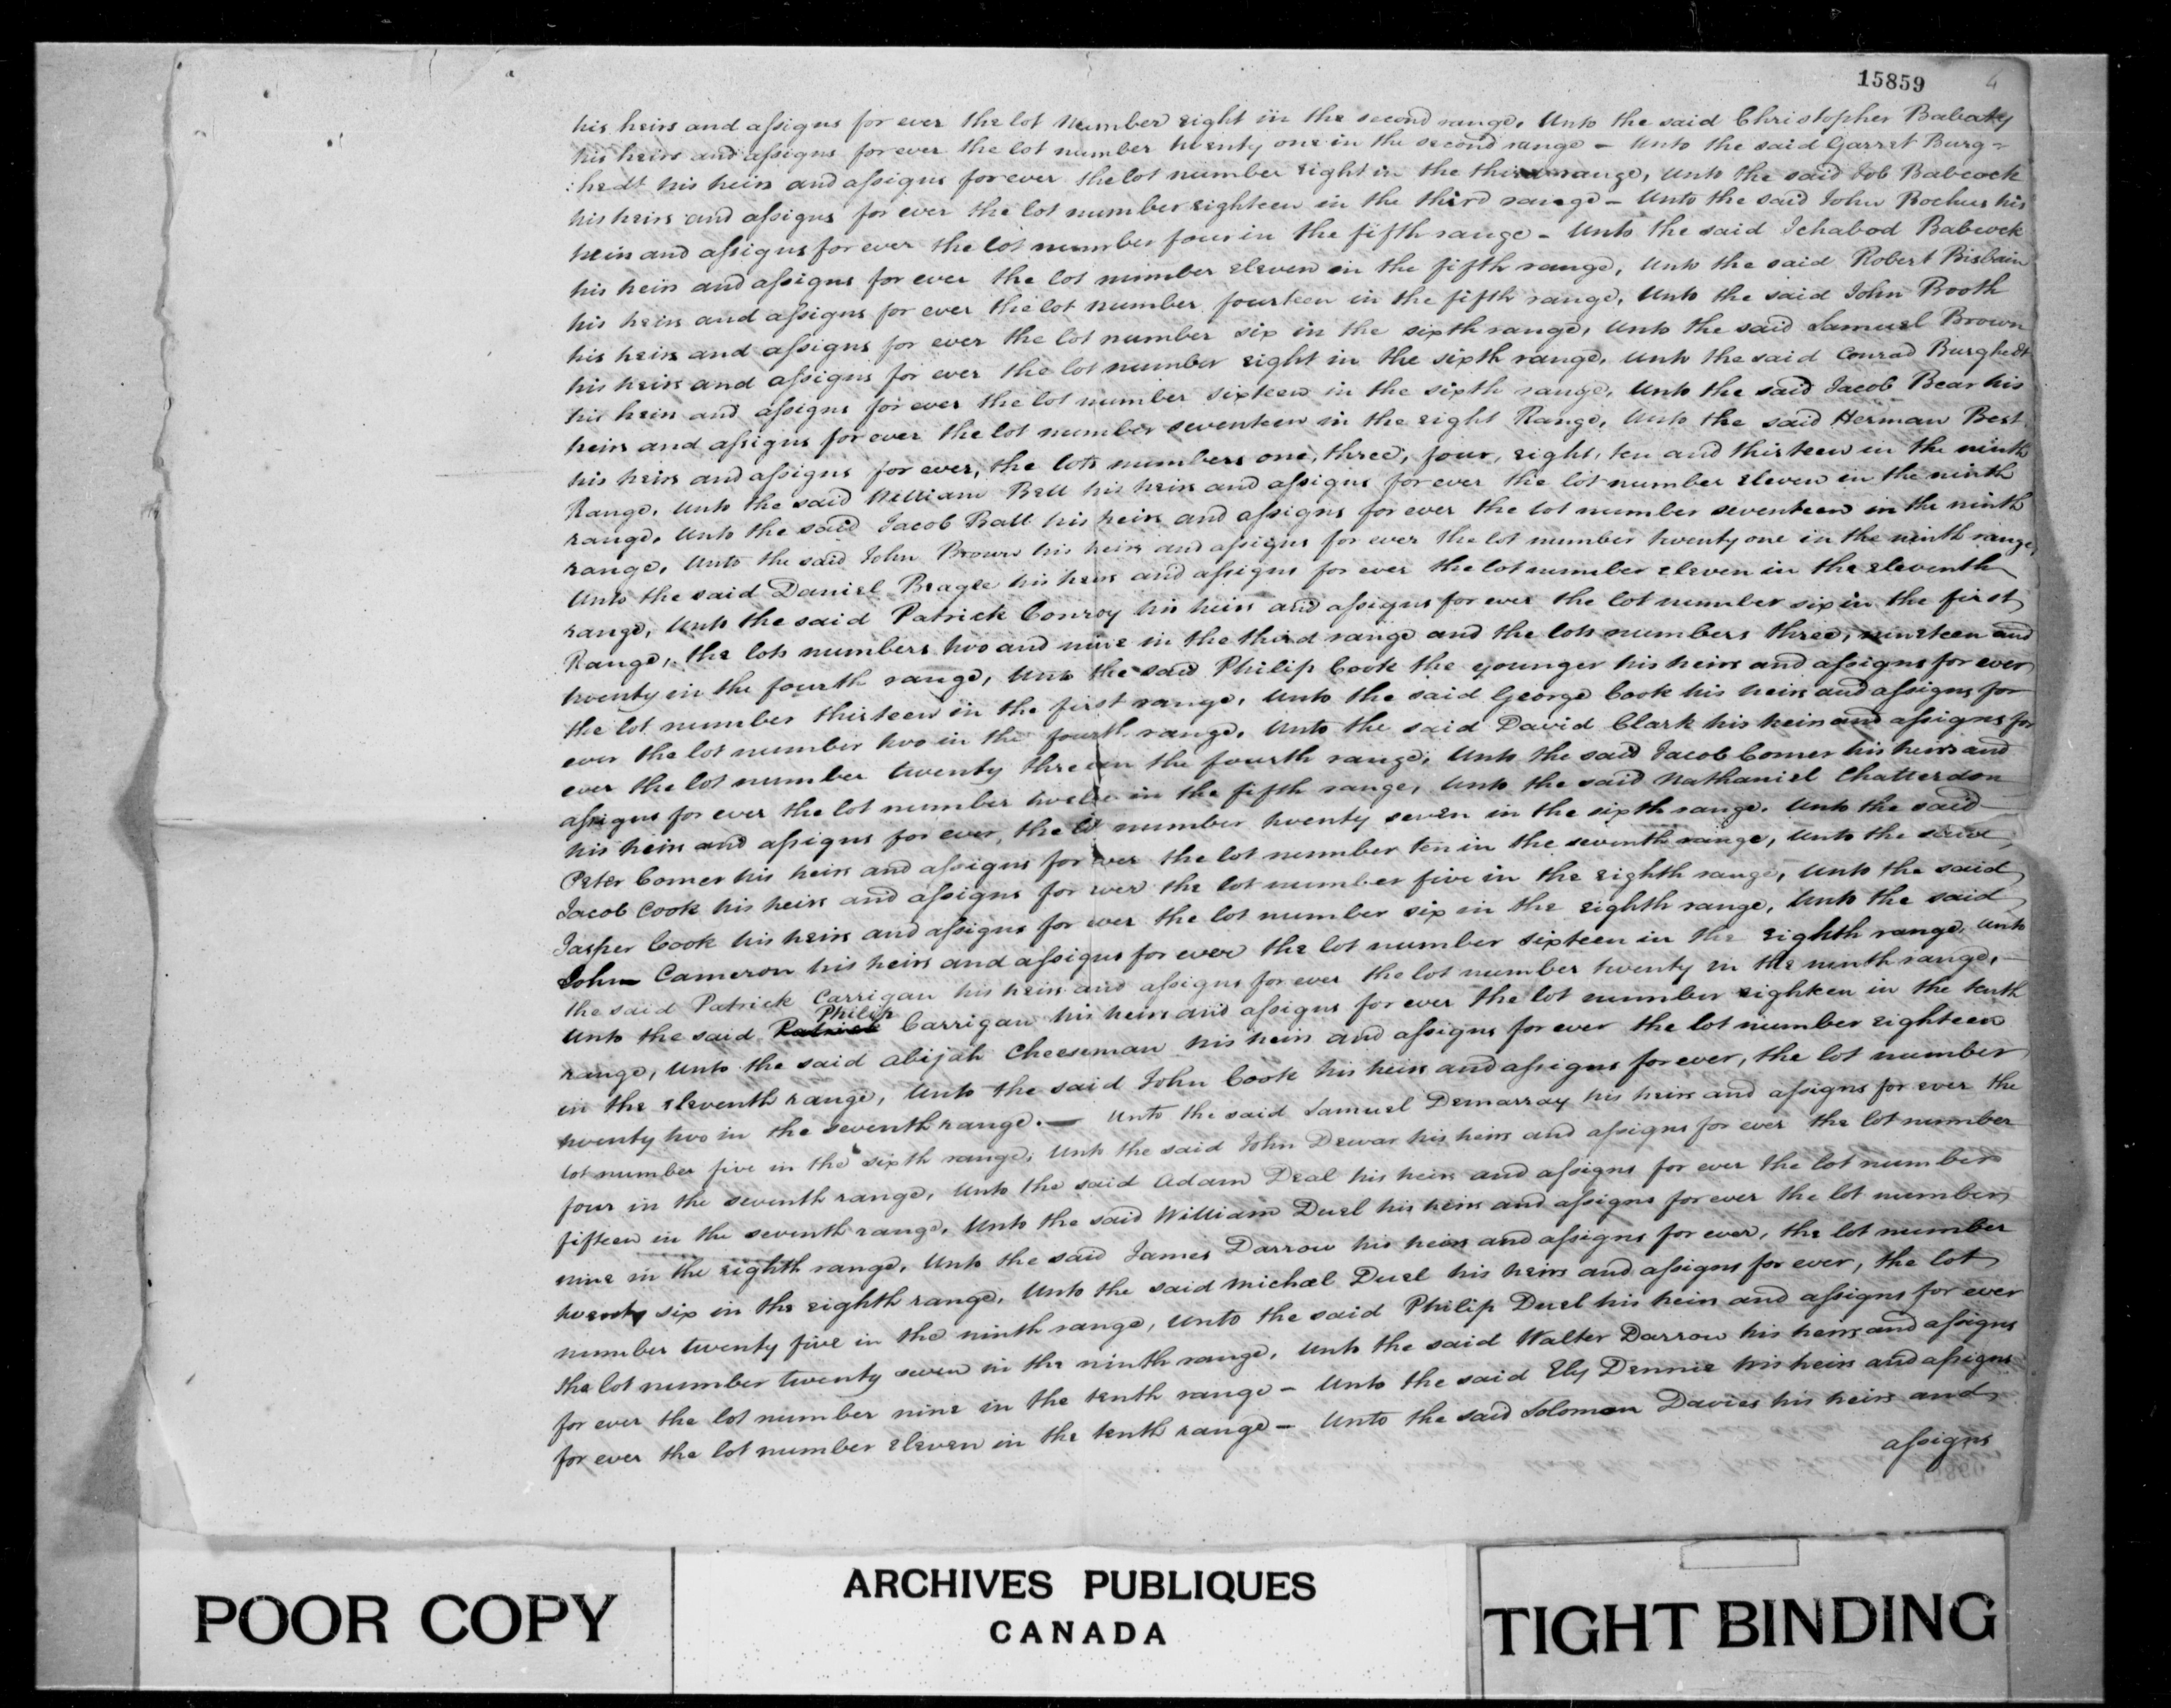 15859 4
his heirs and assigns for ever the lot number eight in the second range, Unto the said Christopher Babaty
his heirs and assigns for ever the lot number twenty one in the second range - Unto the said Garret Burg-
:hedt his heirs and assigns for ever the lot number eight in the third range, Unto the said Job Babcock
his heirs and assigns for ever the lot number eighteen in the third range - Unto the said John Bochus his
heirs and assigns for ever the lot number four in the fifth range - Unto the said Ichabod Babcock
his heirs and assigns for ever the lot number eleven in the fifth range, Unto the said Robert Bisbain
his heirs and assigns for ever the lot number fourteen in the fifth range, Unto the said John Booth
his heirs and assigns for ever the lot number six in the sixth range, Unto the said Samuel Brown
his heirs and assigns for ever the lot number eight in the sixth range, Unto the said Conrad Burghedt
his heirs and assigns for ever the lot number sixteen in the sixth range, Unto the said Jacob Bear his
heirs and assigns for ever the lot number seventeen in the eight Range, Unto the said Herman Best
his heirs and assigns for ever, the lots numbers one, three, four, eight, ten and thirteen in the ninth
Range, Unto the said William Bell his heirs and assigns for ever the lot number eleven in the ninth
range, Unto the said Jacob Ball his heirs and assigns for ever the lot number seventeen in the ninth
range, Unto the said John Brown his heirs and assigns for ever the lot number twenty one in the ninth range,
Unto the said Daniel Beagle his heirs and assigns for ever the lot number eleven in the eleventh
range, Unto the said Patrick Conroy his heirs and assigns for ever the lot number six in the first
Range, the lots numbers two and nine in the third range and the lots numbers three, nineteen and
twenty in the fourth range, Unto the said Philip Cook the younger his heirs and assigns for ever
the lot number thirteen in the first range, Unto the said George Cook his heirs and assigns for
ever the lot number two in the fourth range, Unto the said David Clark his heirs and assigns for
ever the lot number twenty three in the fourth range, Unto the said Jacob Comer his heirs and
assigns for ever the lot number twelve in the fifth range, Unto the said Nathaniel Chatterdon
his heirs and assigns for ever, the lot number twenty seven in the sixth range. Unto the said
Peter Comer his heirs and assigns for ever the lot number ten in the seventh range, Unto the said
Jacob Cook his heirs and assigns for ever the lot number five in the eighth range, Unto the said
Jasper Cook his heirs and assigns for ever the lot number six in the eighth range, Unto the said
John Cameron his heirs and assigns for ever the lot number sixteen in the eighth range, Unto
the said Patrick Carrigan his heirs and assigns for ever the lot number twenty in the ninth range,
Unto the said Patrick Philip Carrigan his heirs and assigns for ever the lot number eighteen in the tenth
range, Unto the said Abijah Cheeseman his heirs and assigns for ever the lot number eighteen
in the eleventh range, Unto the said John Cook his heirs and assigns for ever, the lot number
twenty two in the seventh range. — Unto the said Samuel Demarray his heirs and assigns for ever the
lot number five in the sixth range, Unto the said John Dewar his heirs and assigns for ever the lot number
four in the seventh range, Unto the said Adam Deal his heirs and assigns for ever the lot number
fifteen in the seventh range, Unto the said William Duel his heirs and assigns for ever the lot number
nine in the eighth range, Unto the said James Darrow his heirs and assigns for ever, the lot number
twenty six in the eighth range, Unto the said Michael Duel his heirs and assigns for ever, the lot
number twenty five in the ninth range, Unto the said Philip Duel his heirs and assigns for ever
the lot number twenty seven in the ninth range, Unto the said Walter Darrow his heirs and assigns
for ever the lot number nine in the tenth range - Unto the said Ely Dennie his heirs and assigns
for ever the lot number eleven in the tenth range - Unto the said Solomon Davies his heirs and
assigns
POOR COPY
ARCHIVES PUBLIQUES
CANADA
TIGHT BINDING